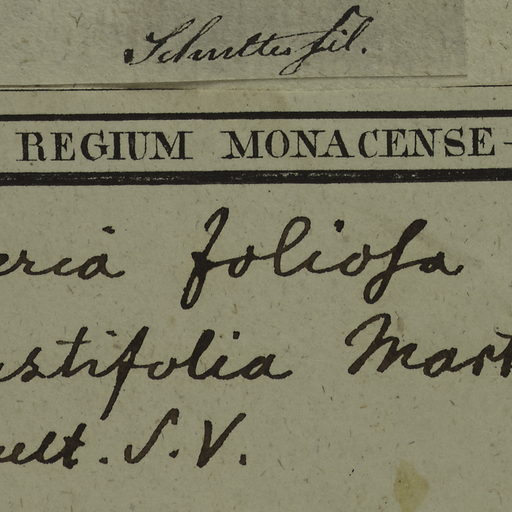 Schultes fil.
REGIUM MONACENSE
eria foliosa
ustifolia Mart
ult. S. V.